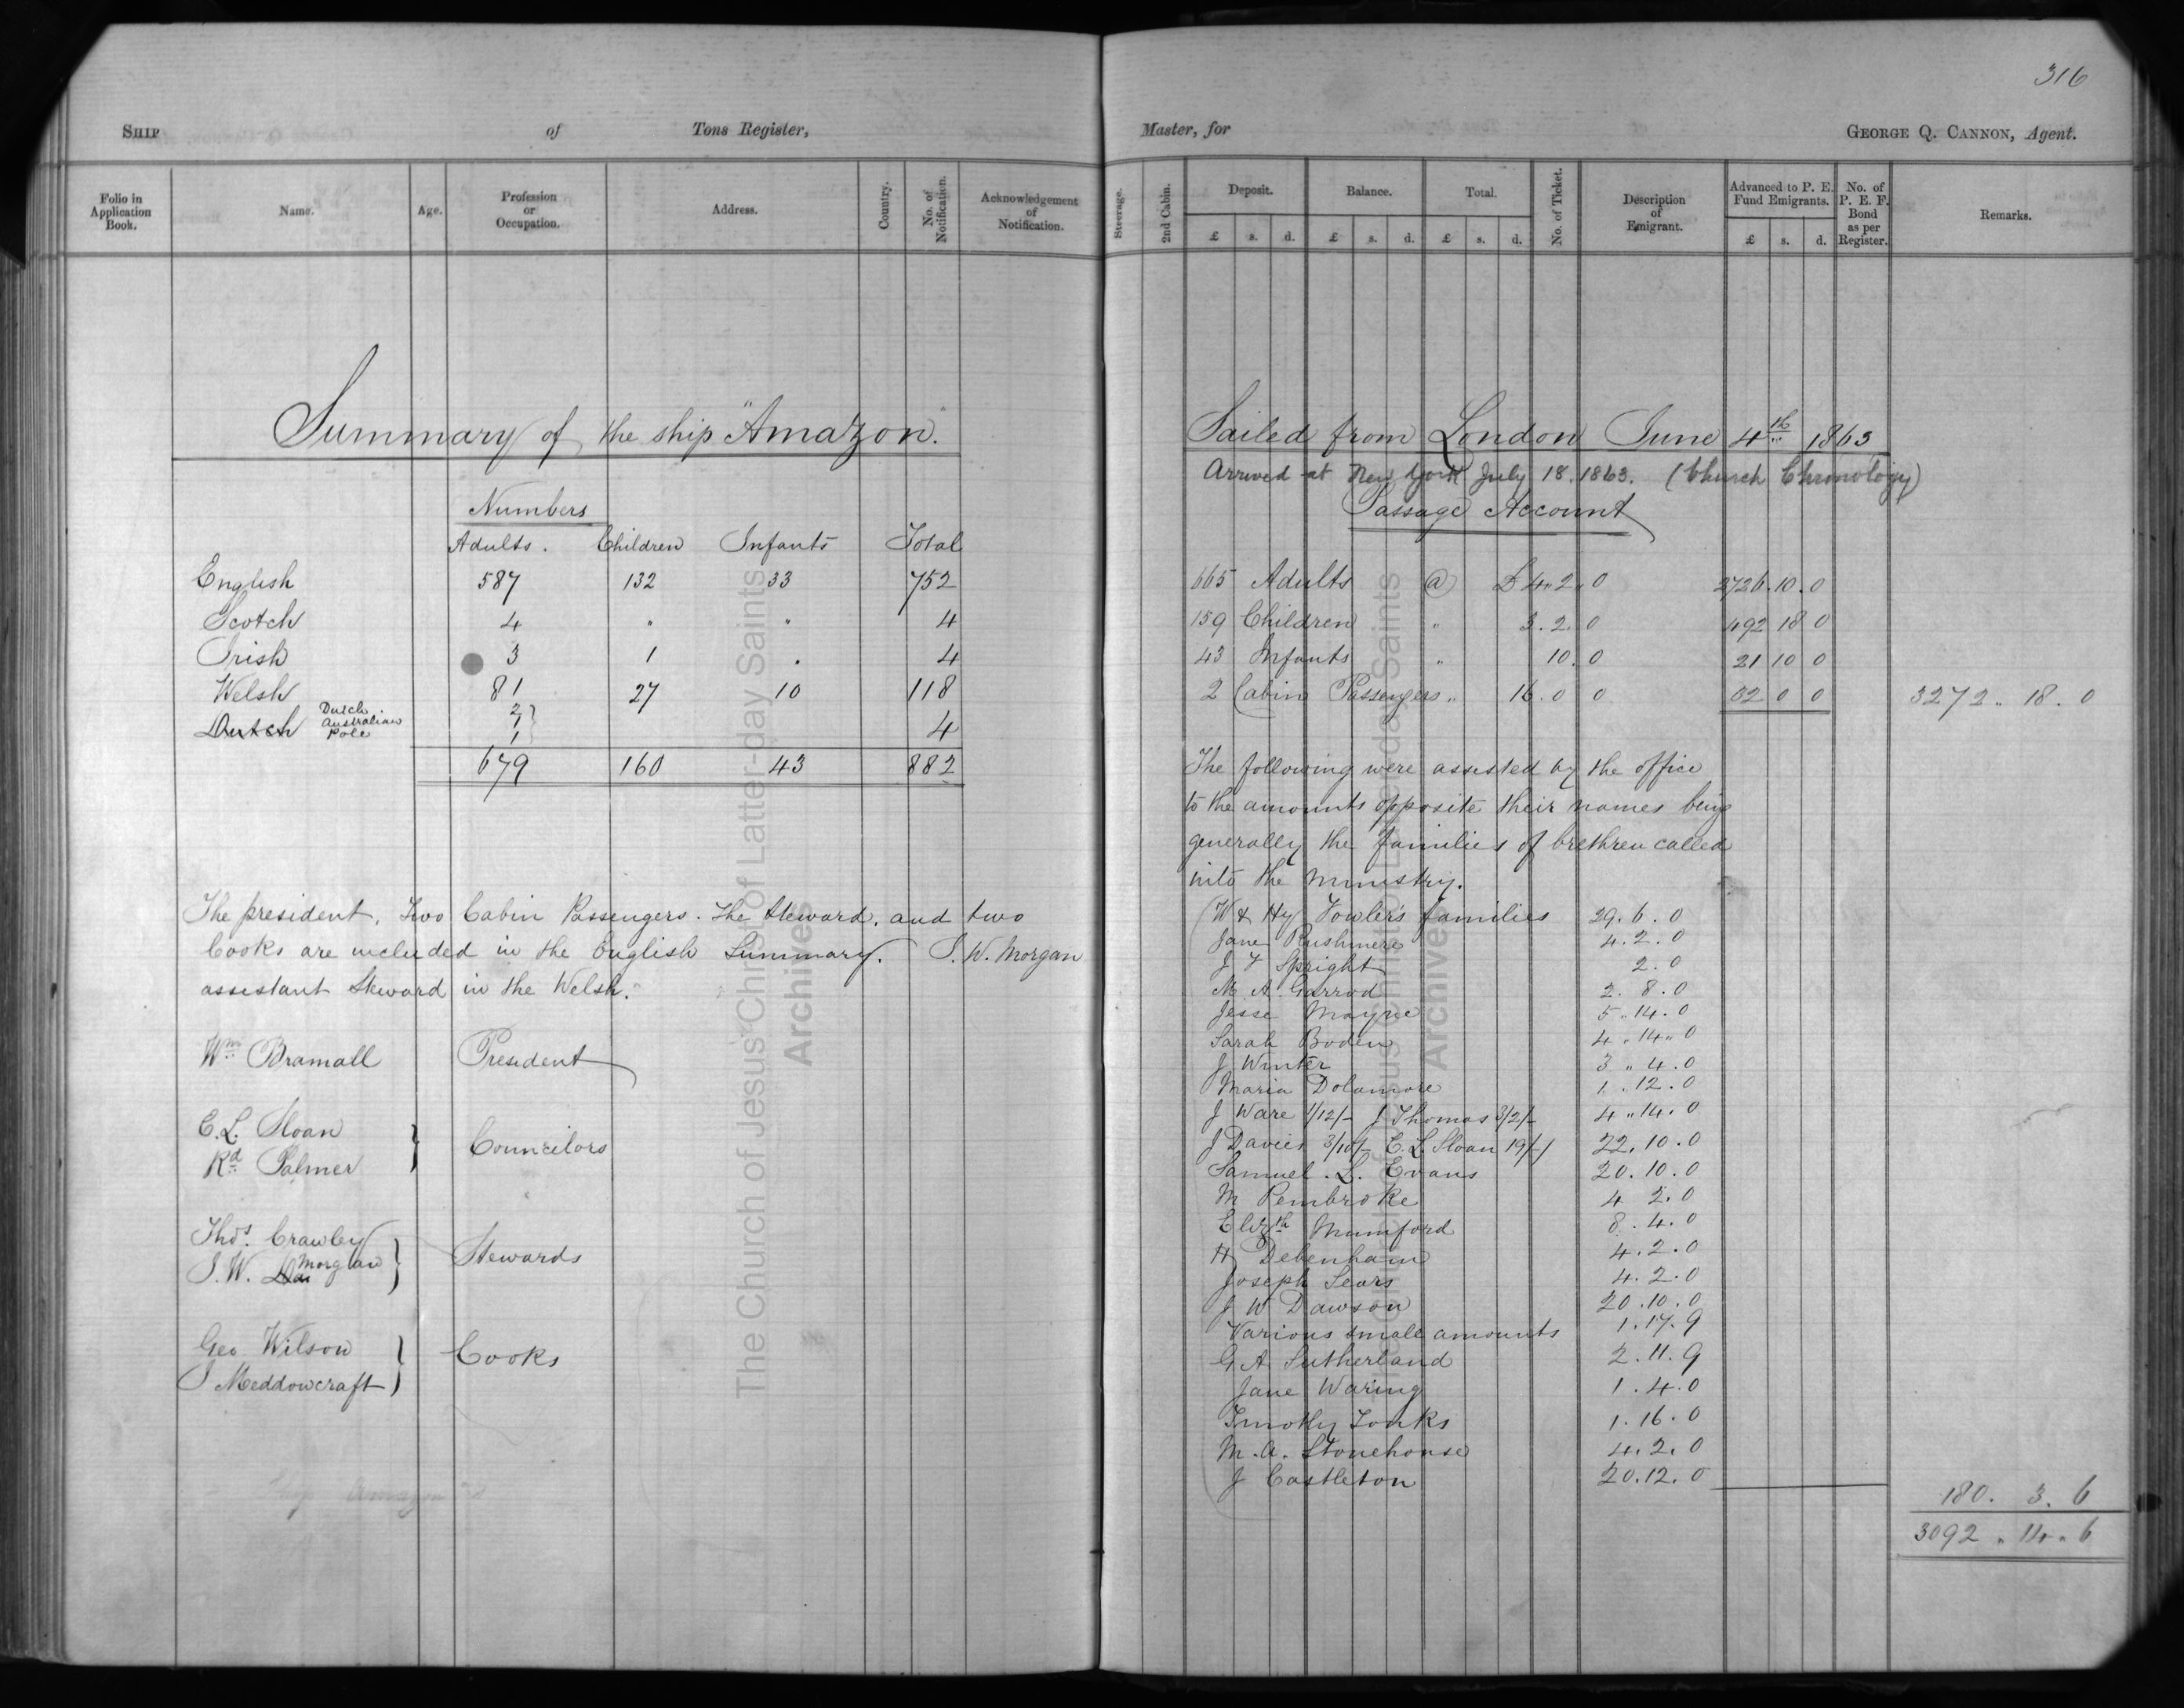 316
SHIP of Tons Register, Master, for GEORGE Q. CANNON, Agent.
Folio in Application Book. Name. Age. Profession or Occupation. Address. Country. No. of Notification. Acknowledgement of Notification. Steerage. 2nd Cabin. Deposit. Balance. Total. No. of Ticket. Description of Emigrant. Advanced to P. E. Fund Emigrants. No. of P. E. F. Bond as per Register. Remarks.
£ s. d. £ s. d. £ s. d. £ s. d.
Summary of the ship "Amazon."
Numbers
Adults. Children Infants Total
English 587 132 33 752
Scotch 4 " " 4
Irish 3 1 . 4
Welsh 81 27 10 118
Dutch Dutch 2
Australian 1
Pole 1 4
679 160 43 882
The president, Two Cabin Passengers. The Steward, and two
Cooks are included in the English Summary. J. W. Morgan
assistant Steward in the Welsh.
Wm Bramall President
E. L. Sloan
Rd Palmer } Councilors
Thos. Crawley
J. W. Morgan } Stewards
Geo Wilson
J Meddowcraft } Cooks
Sailed from London June 4th 1863
Arrived at New York July 18. 1863. (Church Chronology)
Passage Account
665 Adults @ £ 4 " 2 " 0 2726 . 10 . 0
159 Children " 3 . 2 . 0 492 18 0
43 Infants " 10 . 0 21 10 0
2 Cabin Passengers " 16 . 0 0 32 0 0 3272 " 18 . 0
The following were assisted by the office
to the amounts opposite their names being
generally the families of brethren called
into the ministry.
W & Hy Fowler's families 29 . 6 . 0
Jane Rushmere 4 . 2 . 0
J F Spright 2 . 0
M. A. Garrod 2 . 8 . 0
Jesse Mayne 5 " 14 . 0
Sarah Boden 4 " 14 " 0
J Winter 3 " 4 . 0
Maria Dolamore 1 . 12 . 0
J Ware 1/12/- J Thomas 3/2/- 4 " 14 . 0
J Davies 3/10/- E. L. Sloan 19/-/ 22 . 10 . 0
Samuel . L . Evans 20 . 10 . 0
M Pembroke 4 2 . 0
Elizth Mumford 8 . 4 . 0
H Debenham 4 . 2 . 0
Joseph Sears 4 . 2 . 0
J W Dawson 20 . 10 . 0
Various small amounts 1 . 17 . 9
G A Sutherland 2 . 11 . 9
Jane Waring 1 . 4 . 0
Timothy Tonks 1 . 16 . 0
M. A. Stonehouse 4 . 2 . 0
J Castleton 20 . 12 . 0
180 . 3 . 6
3092 " 14 " 6
The Church of Jesus Christ of Latter-day Saints
Archives
The Church of Jesus Christ of Latter-day Saints
Archives